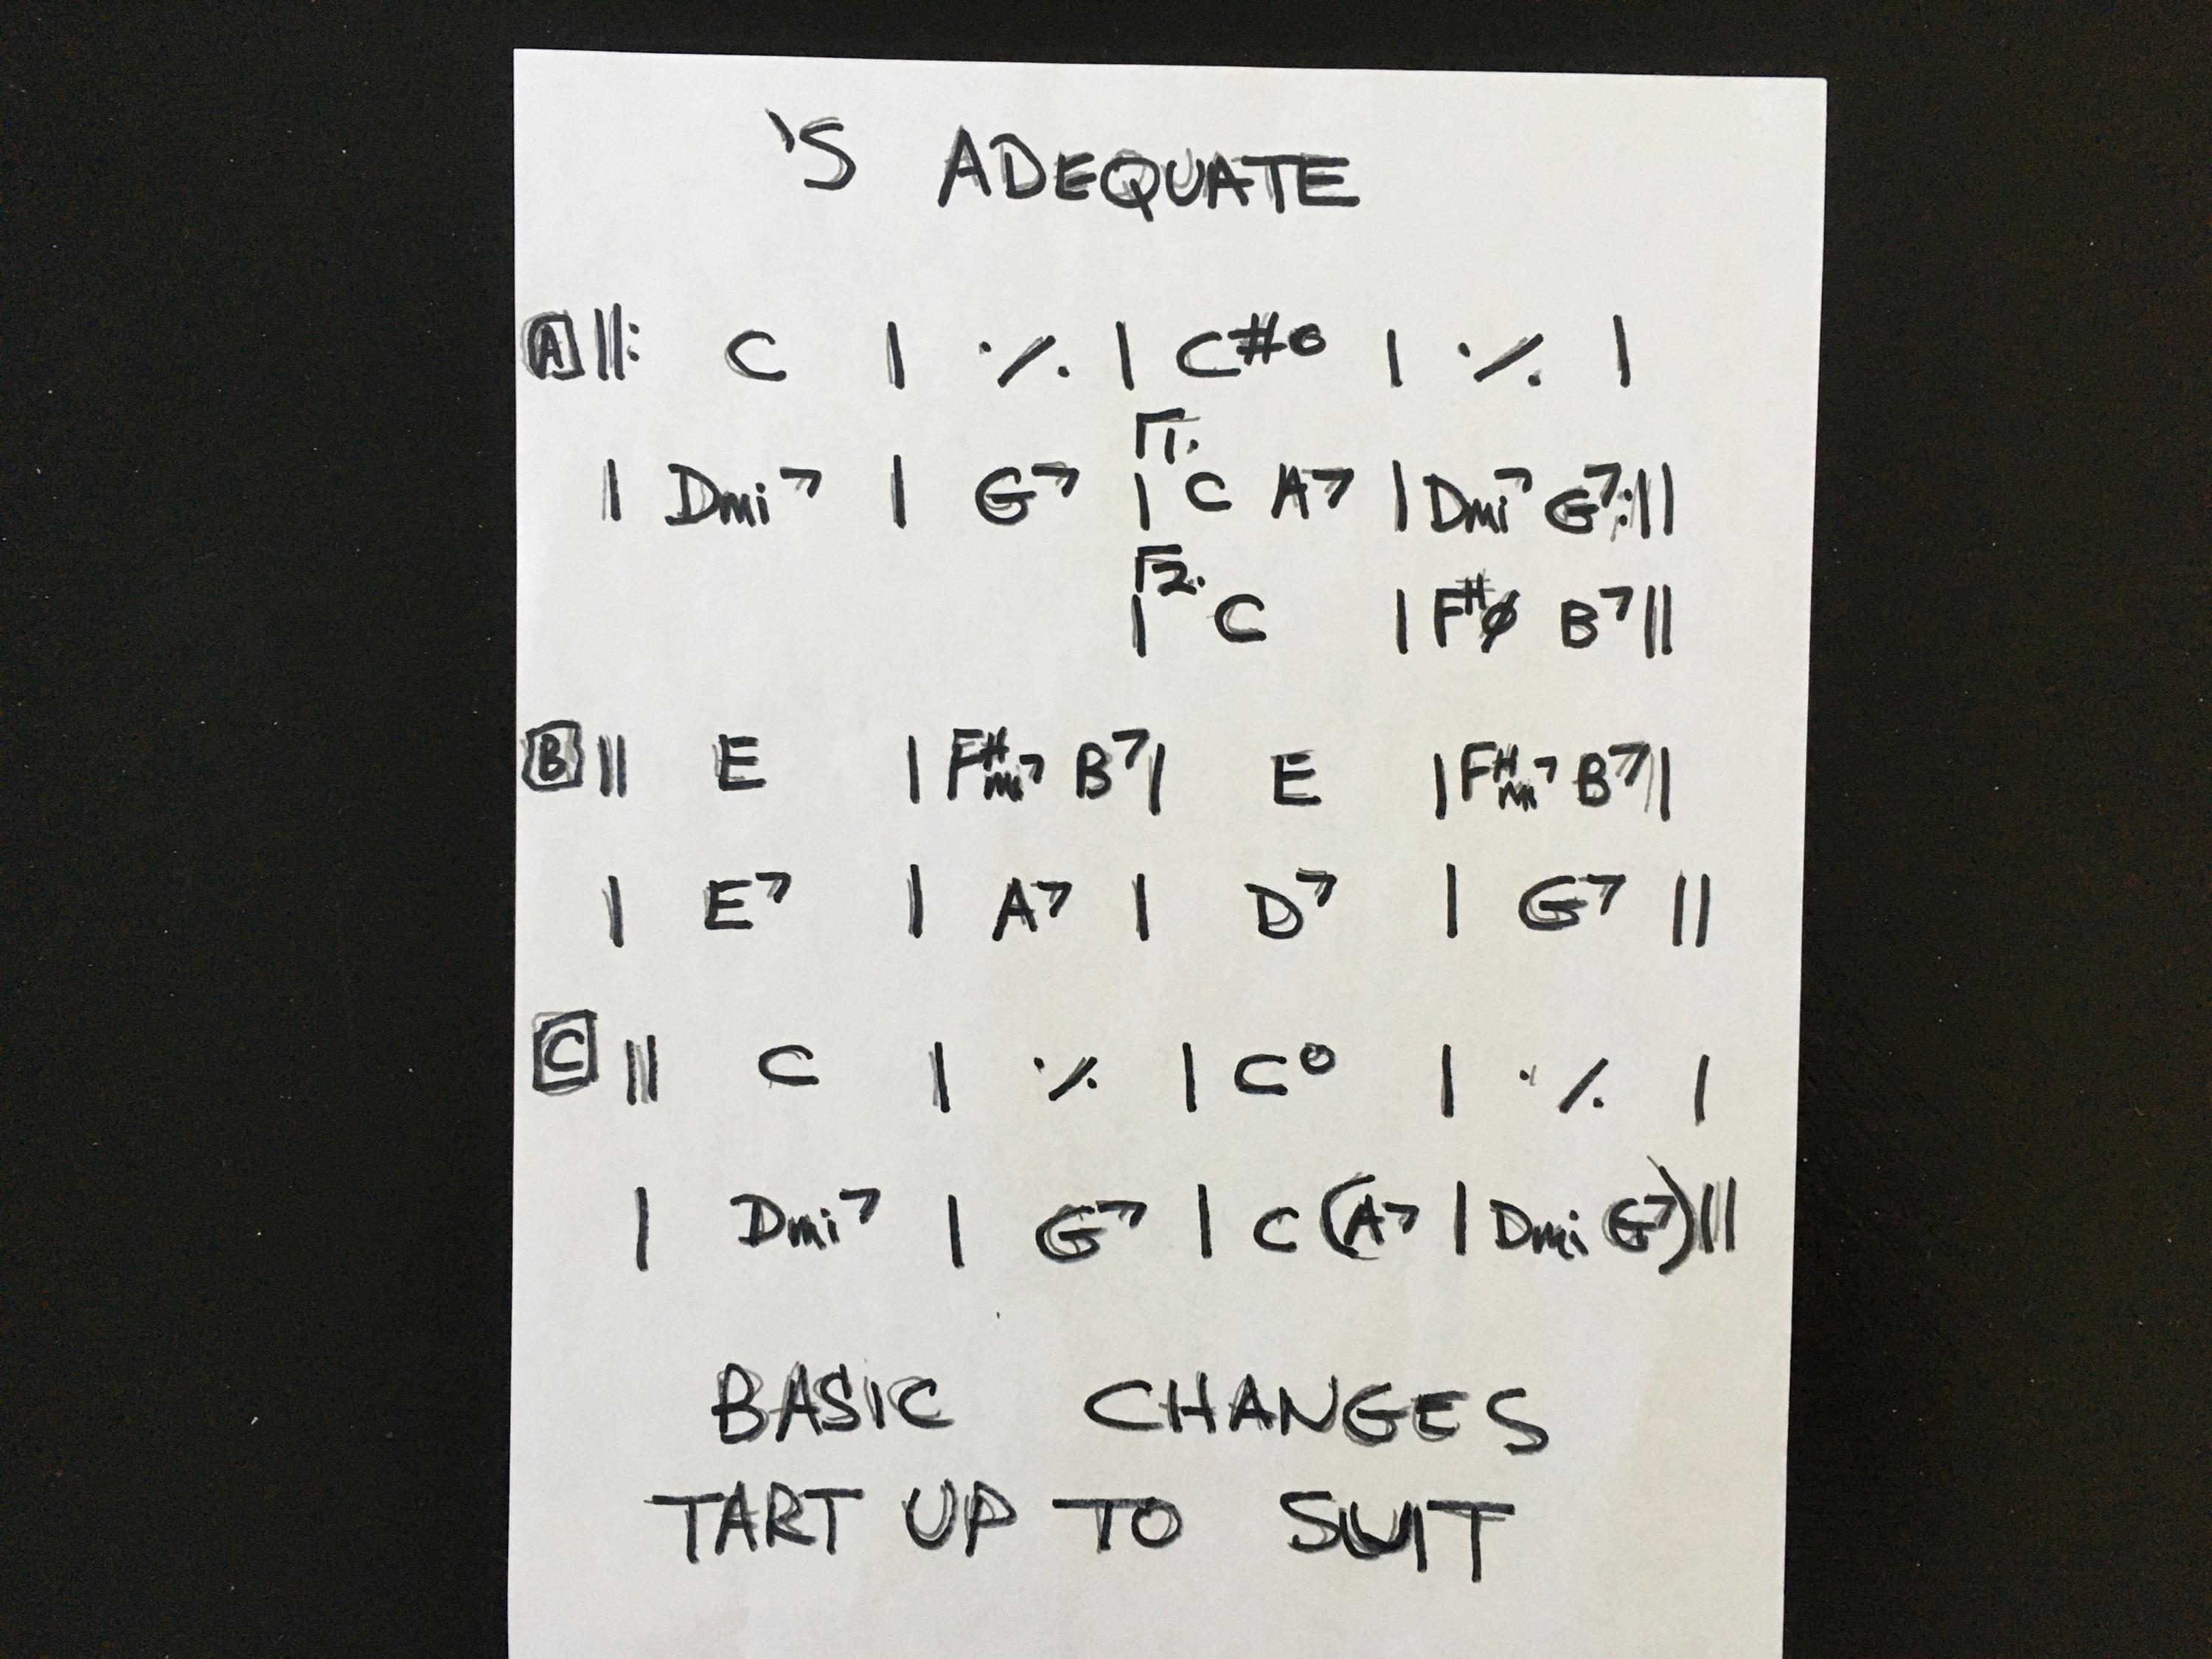 'S ADEQUATE
A ||: C | ٪ | C#o | ٪ |
| Dmi7 | G7 | 1. C A7 | Dmi7 G7 :||
| 2. C | F#ø B7 ||
B || E | F#mi7 B7 | E | F#mi7 B7 |
| E7 | A7 | D7 | G7 ||
C || C | ٪ | Co | ٪ |
| Dmi7 | G7 | C (A7 | Dmi G7) ||
BASIC CHANGES
TART UP TO SUIT